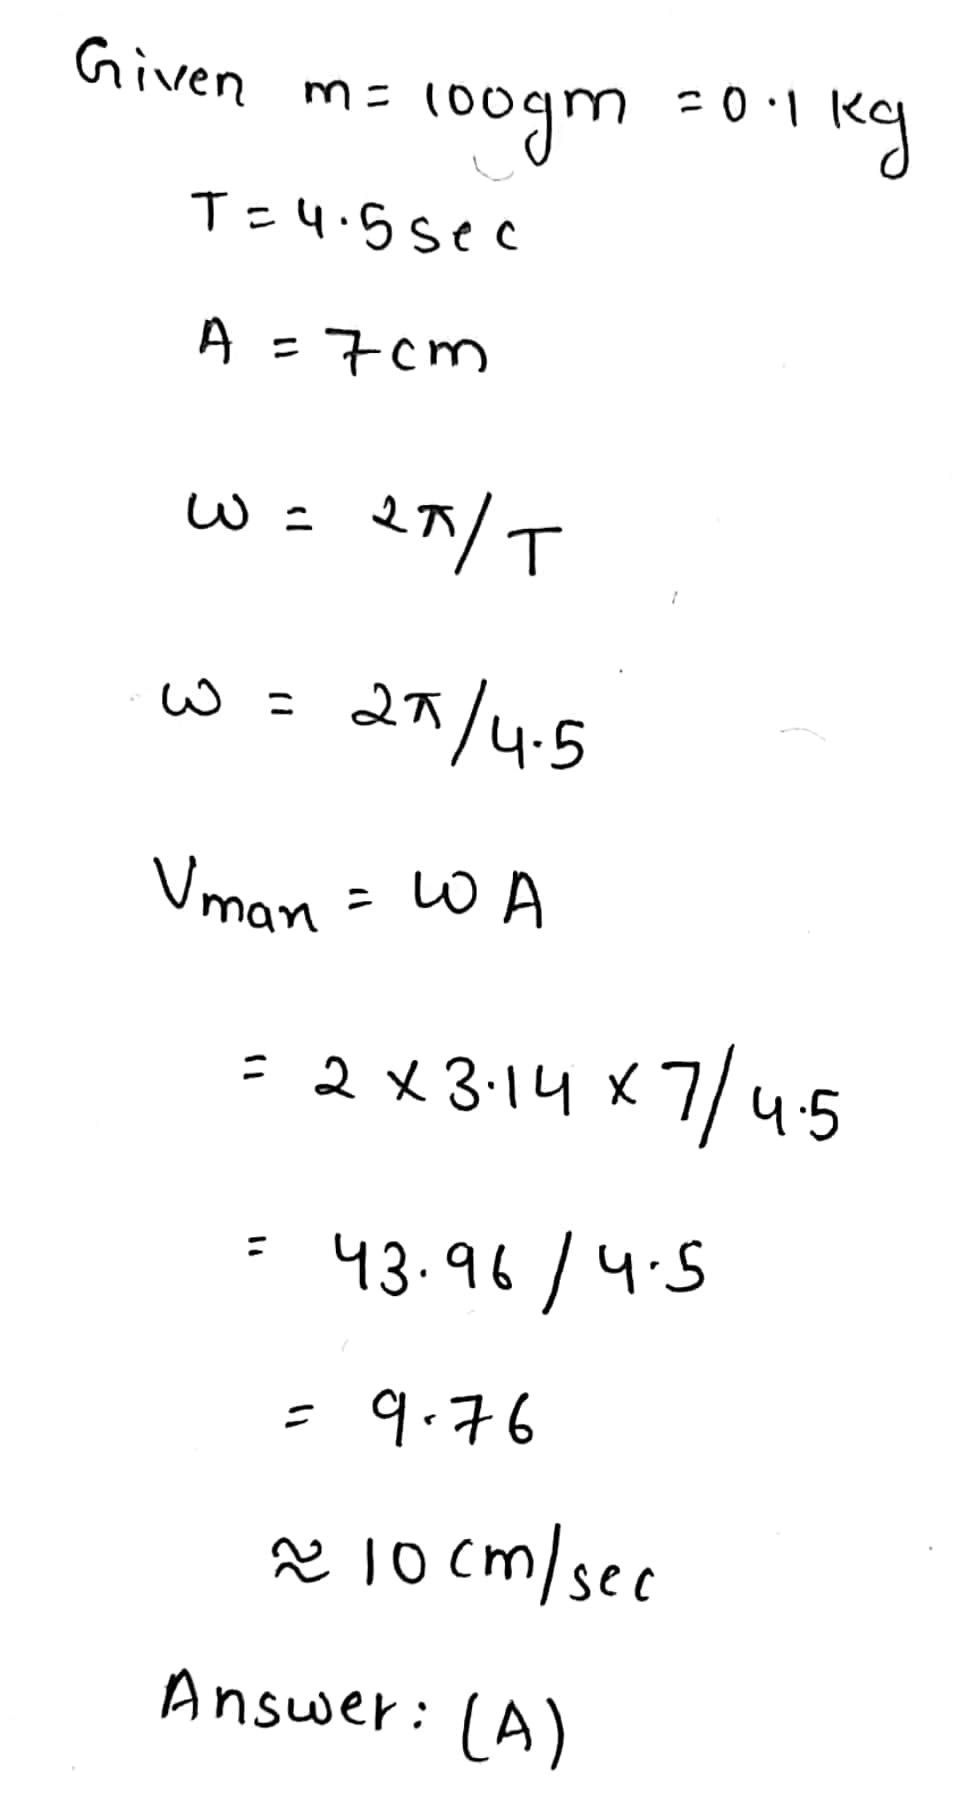 Given m = 100gm = 0.1 kg
T = 4.5 sec
A = 7cm
ω = 2π/T
ω = 2π/4.5
Vman = ωA
= 2 × 3.14 × 7/4.5
= 43.96 / 4.5
= 9.76
≈ 10 cm/sec
Answer: (A)